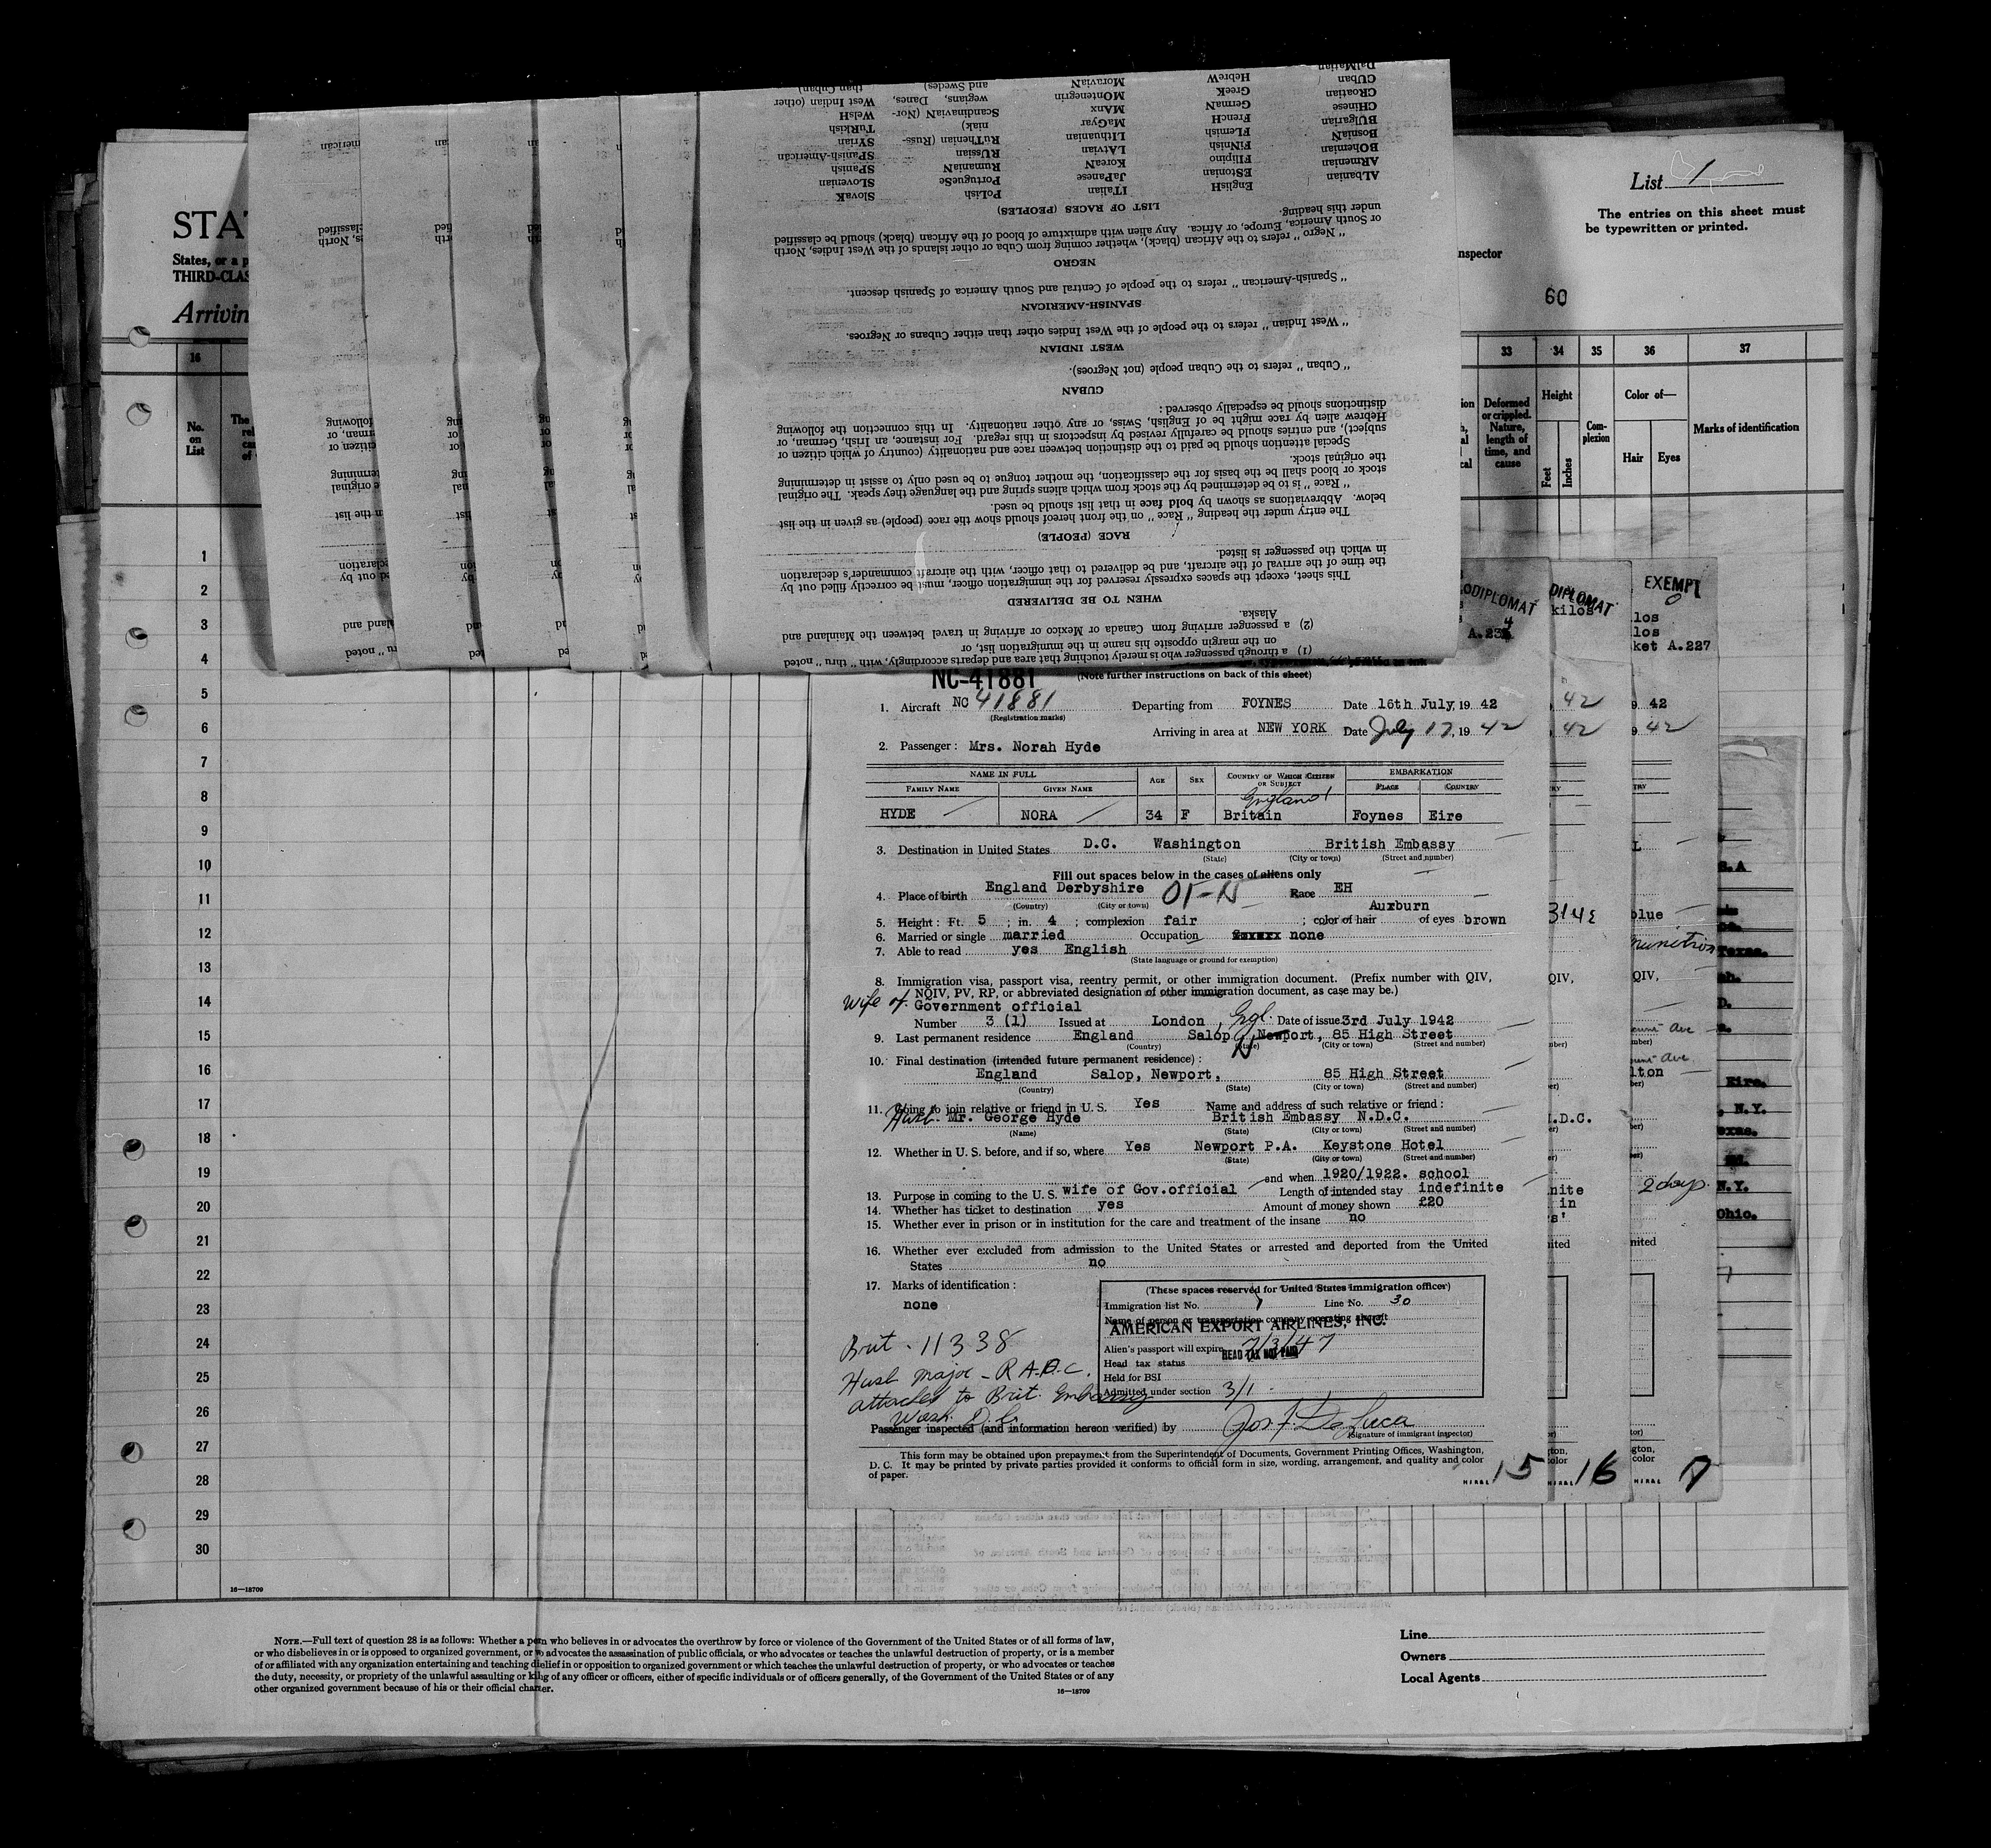 STA
States, or a p
THIRD-CLAS
Arrivin
List 1
The entries on this sheet must
be typewritten or printed.
nspector
60
16
33
34
35
36
37
No.
on
List
The
Deformed
or crippled.
Nature,
length of
time, and
cause
Height
Feet
Inches
Com-
plexion
Color of—
Hair
Eyes
Marks of identification
1
2
3
4
5
6
7
8
9
10
11
12
13
14
15
16
17
18
19
20
21
22
23
24
25
26
27
28
29
30
(1) a through passenger who is merely touching that area and departs accordingly, with "thru" noted
on the margin opposite his name in the immigration list, or
(2) a passenger arriving from Canada or Mexico or arriving in travel between the Mainland and
Alaska.
WHEN TO BE DELIVERED
This sheet, except the spaces expressly reserved for the immigration officer, must be correctly filled out by
the time of the arrival of the aircraft, and be delivered to that officer, with the aircraft commander's declaration
in which the passenger is listed.
RACE (PEOPLE)
The entry under the heading "Race" on the front hereof should show the race (people) as given in the list
below. Abbreviations as shown by bold face in that list should be used.
"Race" is to be determined by the stock from which aliens spring and the language they speak. The original
stock or blood shall be the basis for the classification, the mother tongue to be used only to assist in determining
the original stock.
Special attention should be paid to the distinction between race and nationality (country of which citizen or
subject), and entries should be carefully revised by inspectors in this regard. For instance, an Irish, German, or
Hebrew alien by race might be of English, Swiss, or any other nationality. In this connection the following
distinctions should be especially observed:
CUBAN
"Cuban" refers to the Cuban people (not Negroes).
WEST INDIAN
"West Indian" refers to the people of the West Indies other than either Cubans or Negroes.
SPANISH-AMERICAN
"Spanish-American" refers to the people of Central and South America of Spanish descent.
NEGRO
"Negro" refers to the African (black), whether coming from Cuba or other islands of the West Indies, North
or South America, Europe, or Africa. Any alien with admixture of blood of the African (black) should be classified
under this heading.
LIST OF RACES (PEOPLES)
ALbanian EStonian JaPanese PortugueSe SLovenian
ARmenian FIlipino KoreaN RumaniaN SPanish
BOhemian FiNnish LAtvian RUssian SPanish-American
BosniaN FLemish LIthuanian RuThenian (Russ- SYrian
BUlgarian FrencH MaGyar niak) TuRkish
CHinese GermaN MAnx ScandinaviaN (Nor- WelsH
CRoatian GreeK MOntenegrin wegians, Danes, West Indian (other
CUban HebreW MoraviaN and Swedes) than Cuban)
DalMatian
EnglisH ITalian PoLish SlovaK
NC-41881
(Note further instructions on back of this sheet)
1. Aircraft NC 41881 Departing from FOYNES Date 16th July, 19 42
(Registration marks)
Arriving in area at NEW YORK Date July 17, 19 42
2. Passenger: Mrs. Norah Hyde
NAME IN FULL
FAMILY NAME GIVEN NAME
AGE
SEX
COUNTRY OF WHICH CITIZEN
OR SUBJECT
EMBARKATION
PLACE COUNTRY
England
HYDE NORA 34 F Britain Foynes Eire
3. Destination in United States D.C. Washington British Embassy
(State) (City or town) (Street and number)
Fill out spaces below in the cases of aliens only
4. Place of birth England Derbyshire Race EH
(Country) (City or town)
Auxburn
5. Height: Ft. 5; in. 4; complexion fair; color of hair of eyes brown
6. Married or single married Occupation none
7. Able to read yes English
(State language or ground for exemption)
8. Immigration visa, passport visa, reentry permit, or other immigration document. (Prefix number with QIV,
NQIV, PV, RP, or abbreviated designation of other immigration document, as case may be.)
Wife of Government official
Number 3 (1) Issued at London, Engl. Date of issue 3rd July 1942
9. Last permanent residence England Salop Newport, 85 High Street
(Country) (State) (City or town) (Street and number)
10. Final destination (intended future permanent residence):
England Salop, Newport, 85 High Street
(Country) (State) (City or town) (Street and number)
11. Going to join relative or friend in U.S. Yes Name and address of such relative or friend:
Husb. Mr. George Hyde British Embassy N.D.C.
(Name) (State) (City or town) (Street and number)
12. Whether in U.S. before, and if so, where Yes Newport P.A. Keystone Hotel
(State) (City or town) (Street and number)
and when 1920/1922. school
13. Purpose in coming to the U.S. wife of Gov.official Length of intended stay indefinite
14. Whether has ticket to destination yes Amount of money shown £20
15. Whether ever in prison or in institution for the care and treatment of the insane no
16. Whether ever excluded from admission to the United States or arrested and deported from the United
States no
17. Marks of identification:
none
(These spaces reserved for United States immigration officer)
Immigration list No. 1 Line No. 30
Name of person or transportation company operating aircraft
AMERICAN EXPORT AIRLINES, INC.
Alien's passport will expire 7/3/47
Head tax status HEAD TAX NOT PAID
Held for BSI
Admitted under section 3/1
Brit - 11338
Husb Major - R.A.O.C.
attached to Brit. Embassy
Wash. D.C.
Passenger inspected (and information hereon verified) by Jos F DeLuca
(Signature of immigrant inspector)
This form may be obtained upon prepayment from the Superintendent of Documents, Government Printing Offices, Washington,
D. C. It may be printed by private parties provided it conforms to official form in size, wording, arrangement, and quality and color
of paper.
15
16
DIPLOMAT
DIPLOMAT
kilos
EXEMPT
los
los
ket A.227
42
42
42
42
blue
QIV,
QIV,
lton
I.D.C.
2 days
nite
in
Texas.
Eire.
N.Y.
N.Y.
Ohio.
16—18709
NOTE.—Full text of question 28 is as follows: Whether a person who believes in or advocates the overthrow by force or violence of the Government of the United States or of all forms of law,
or who disbelieves in or is opposed to organized government, or who advocates the assassination of public officials, or who advocates or teaches the unlawful destruction of property, or is a member
of or affiliated with any organization entertaining and teaching disbelief in or opposition to organized government or which teaches the unlawful destruction of property, or who advocates or teaches
the duty, necessity, or propriety of the unlawful assaulting or killing of any officer or officers, either of specific individuals or of officers generally, of the Government of the United States or of any
other organized government because of his or their official character.
16—18709
Line
Owners
Local Agents